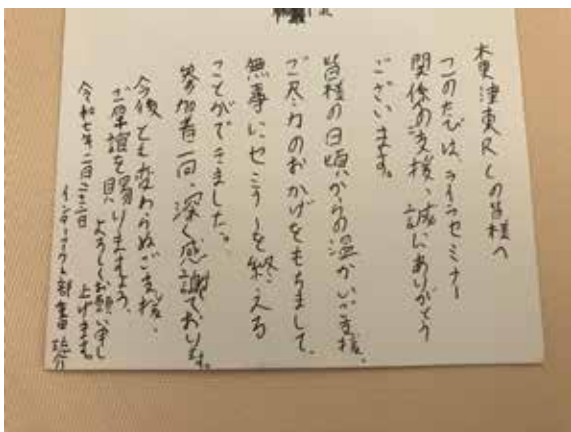 木更津東RCの皆様へ
このたびは、ライラセミナー
関係の支援、誠にありがとう
ございます。
皆様の日頃からの温かいご支援、
ご尽力のおかげをもちまして、
無事にセミナーを終える
ことができました。
参加者一同、深く感謝しております。
今後とも変わらぬご支援、
ご厚誼を賜りますよう、
よろしくお願い申し
上げます。
令和七年二月二三日
インターアクト部